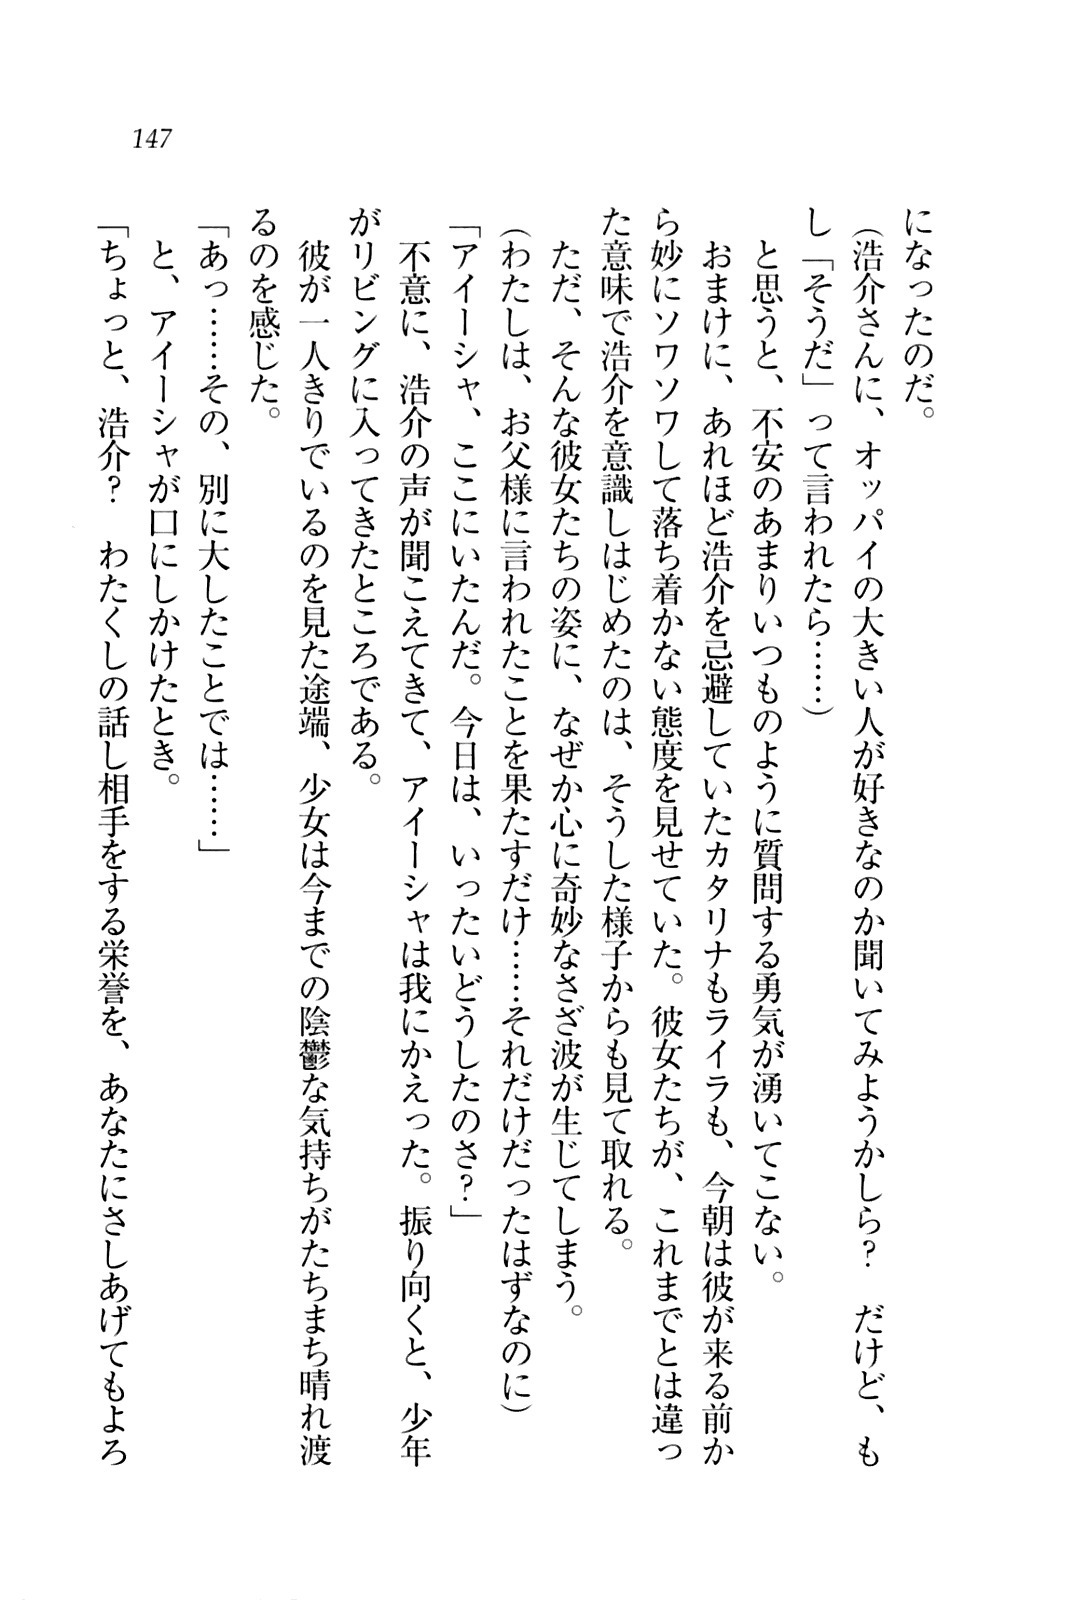 147
になったのだ。
(浩介さんに、オッパイの大きい人が好きなのか聞いてみようかしら?　だけど、も
し「そうだ」って言われたら……)
　と思うと、不安のあまりいつものように質問する勇気が湧いてこない。
　おまけに、あれほど浩介を忌避していたカタリナもライラも、今朝は彼が来る前か
ら妙にソワソワして落ち着かない態度を見せていた。彼女たちが、これまでとは違っ
た意味で浩介を意識しはじめたのは、そうした様子からも見て取れる。
　ただ、そんな彼女たちの姿に、なぜか心に奇妙なさざ波が生じてしまう。
(わたしは、お父様に言われたことを果たすだけ……それだけだったはずなのに)
「アイーシャ、ここにいたんだ。今日は、いったいどうしたのさ?」
　不意に、浩介の声が聞こえてきて、アイーシャは我にかえった。振り向くと、少年
がリビングに入ってきたところである。
　彼が一人きりでいるのを見た途端、少女は今までの陰鬱な気持ちがたちまち晴れ渡
るのを感じた。
「あっ……その、別に大したことでは……」
　と、アイーシャが口にしかけたとき。
「ちょっと、浩介?　わたくしの話し相手をする栄誉を、あなたにさしあげてもよろ